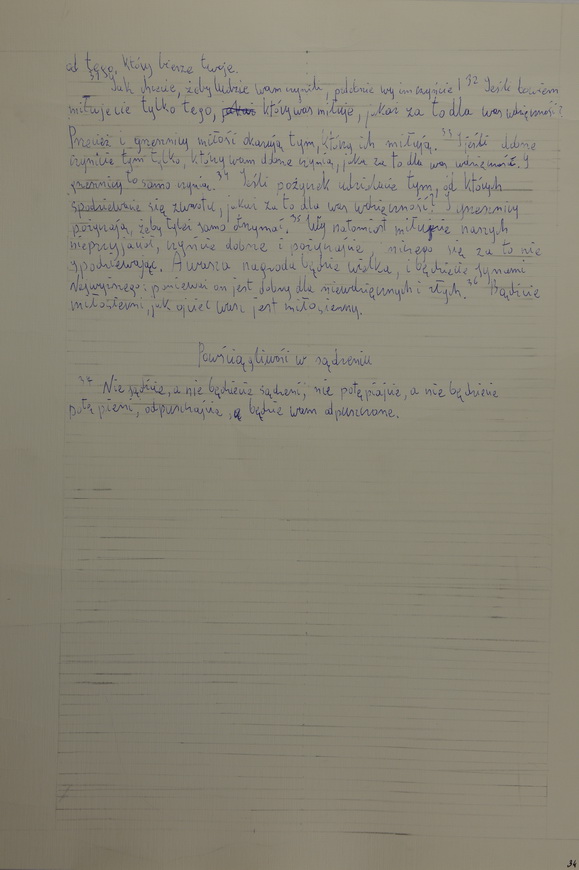 od tego, który bierze twoje.
31 Jak chcecie, żeby ludzie wam czynili, podobnie wy im czyńcie! 32 Jeśli bowiem
miłujecie tylko tego, który was miłuje, jakaż za to dla was wdzięczność?
Przecież i grzesznicy miłość okazują tym, którzy ich miłują. 33 I jeśli dobrze
czynicie tym tylko, którzy wam dobrze czynią, jaka za to dla was wdzięczność. I
grzesznicy to samo czynią. 34 Jeśli pożyczek udzielacie tym, od których
spodziewacie się zwrotu, jakaż za to dla was wdzięczność? I grzesznicy
pożyczają, żeby tyleż samo otrzymać. 35 Wy natomiast miłujcie waszych
nieprzyjaciół, czyńcie dobrze i pożyczajcie, niczego się za to nie
spodziewając. A wasza nagroda będzie wielka, i będziecie synami
Najwyższego; ponieważ on jest dobry dla niewdzięcznych i złych. 36 Bądźcie
miłosierni, jak ojciec wasz jest miłosierny.
Powściągliwość w sądzeniu
37 Nie sądźcie, a nie będziecie sądzeni; nie potępiajcie, a nie będziecie
potępieni, odpuszczajcie, a będzie wam odpuszczone.
34